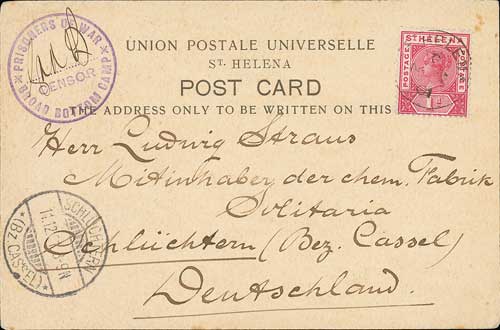 PRISONERS OF WAR
CENSOR
BROAD BOTTOM CAMP
UNION POSTALE UNIVERSELLE
ST. HELENA
POST CARD
THE ADDRESS ONLY TO BE WRITTEN ON THIS
ST HELENA
POSTAGE
POSTAGE
1d
Herr Ludwig Straus
Mitinhaber der chem. Fabrik
Solitaria
Schlüchtern (Bez. Cassel)
Deutschland.
SCHLÜCHTERN
*(BZ. CASSEL)*